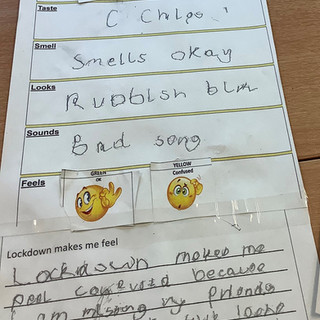 Taste
C Chips
Smell
Smells okay
Looks
Rubbish bin
Sounds
Bad song
GREEN
OK
YELLOW
Confused
Feels
Lockdown makes me feel
Lockdown makes me
feel because
I am missing my friends